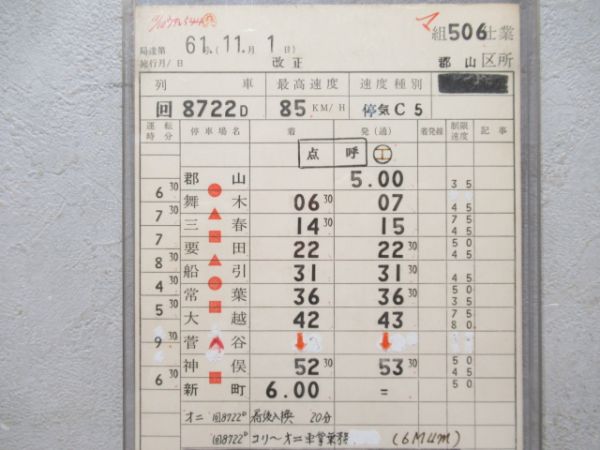 組506仕業
局達第 61号(11.月 1 日)
施行月/日 改正 郡山 区所
列 車 最高速度 速度種別
回8722D 85KM/H 停気C5
運転時分 停車場名 着 発(通) 着発線 制限速度 記事
点呼
郡山 5.00 35
6 30
舞木 06 30 07 45
7 30
三春 14 30 15 75 45
7
要田 22 22 30 50 45
8 30
船引 31 31 30 45
4 30
常葉 36 36 30 50 35
5 30
大越 42 43 75 80
菅谷
9 30
神俣 52 30 53 30 50 45
6 30
新町 6.00 = 50
オニ 回8722D 着後入換 20分
回8722D コリ〜オニ